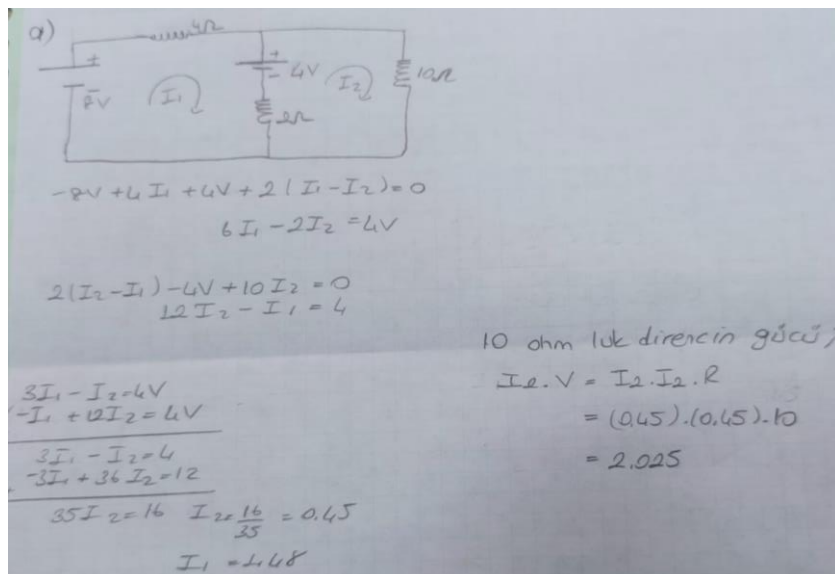 a)
4Ω
+
+
- 4V
8V
I₁
I₂
10Ω
2Ω
-8V + 4I₁ + 4V + 2(I₁-I₂) = 0
6I₁ - 2I₂ = 4V
2(I₂-I₁) - 4V + 10I₂ = 0
12I₂ - I₁ = 4
3I₁ - I₂ = 4V
-I₁ + 12I₂ = 4V
3I₁ - I₂ = 4
-3I₁ + 36I₂ = 12
35I₂ = 16 I₂ = 16/35 = 0.45
I₁ = 1.48
10 ohm luk direncin gücü,
I₂.V = I₂.I₂.R
= (0.45).(0.45).10
= 2.025